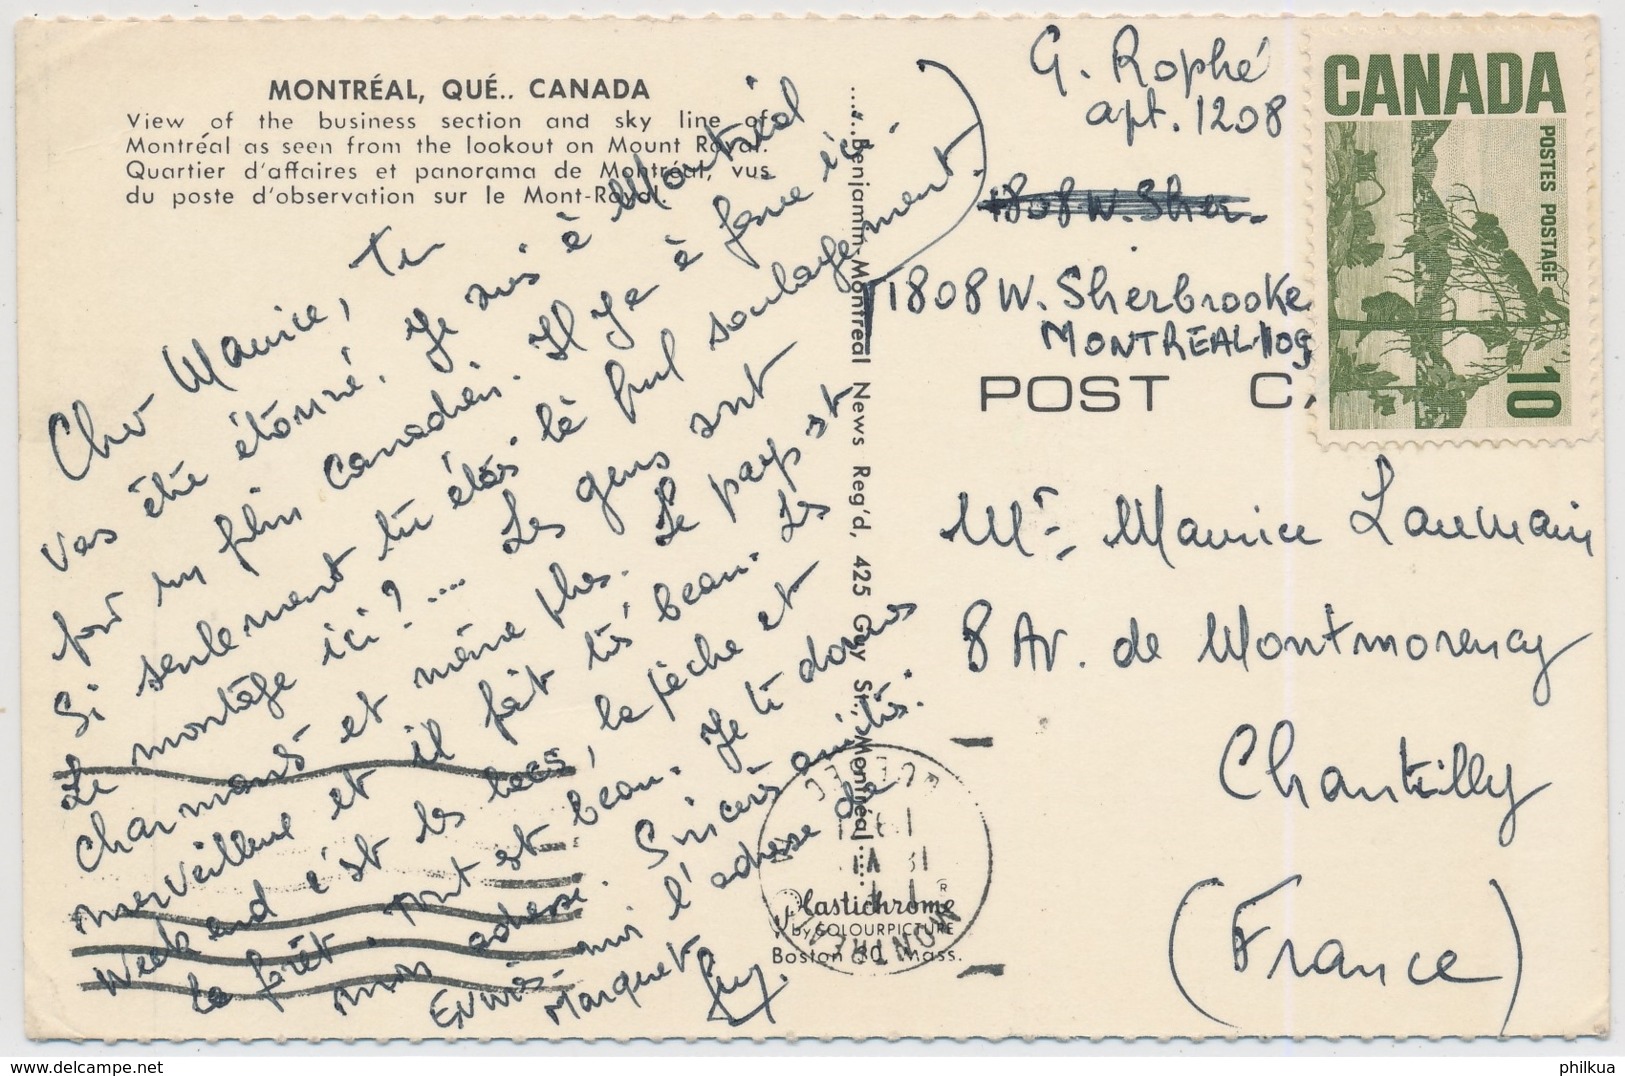 MONTRÉAL, QUÉ.. CANADA
View of the business section and sky line of
Montréal as seen from the lookout on Mount Royal.
Quartier d'affaires et panorama de Montréal, vus
du poste d'observation sur le Mont-Royal.
Cher Maurice, tu
vas être étonné. Je suis à Montréal
pour un film canadien. Il y a à faire ici.
Si seulement tu étais là pour
le montage ici ? .... Les gens sont
charmants et même plus. Le pays est
merveilleux et il fait très beau. Les
week end c'est les lacs, la pêche et
la forêt. Tout est beau. Je te donne
mon adresse. Sincères amitiés.
Envois-moi l'adresse de
Marquet
Guy.
soulagement.)
....Benjamin-Montreal News Reg'd, 425 Guy St., Montréal....
G. Rophé
apt. 1208
1808 W. Sher.
1808 W. Sherbrooke
MONTREAL 109
POST CA
CANADA
POSTES POSTAGE
10
Mr Maurice Laumain
8 Av. de Montmorency
Chantilly
(France)
MONTREAL
Plastichrome®
by COLOURPICTURE
Boston 30, Mass.
philkua